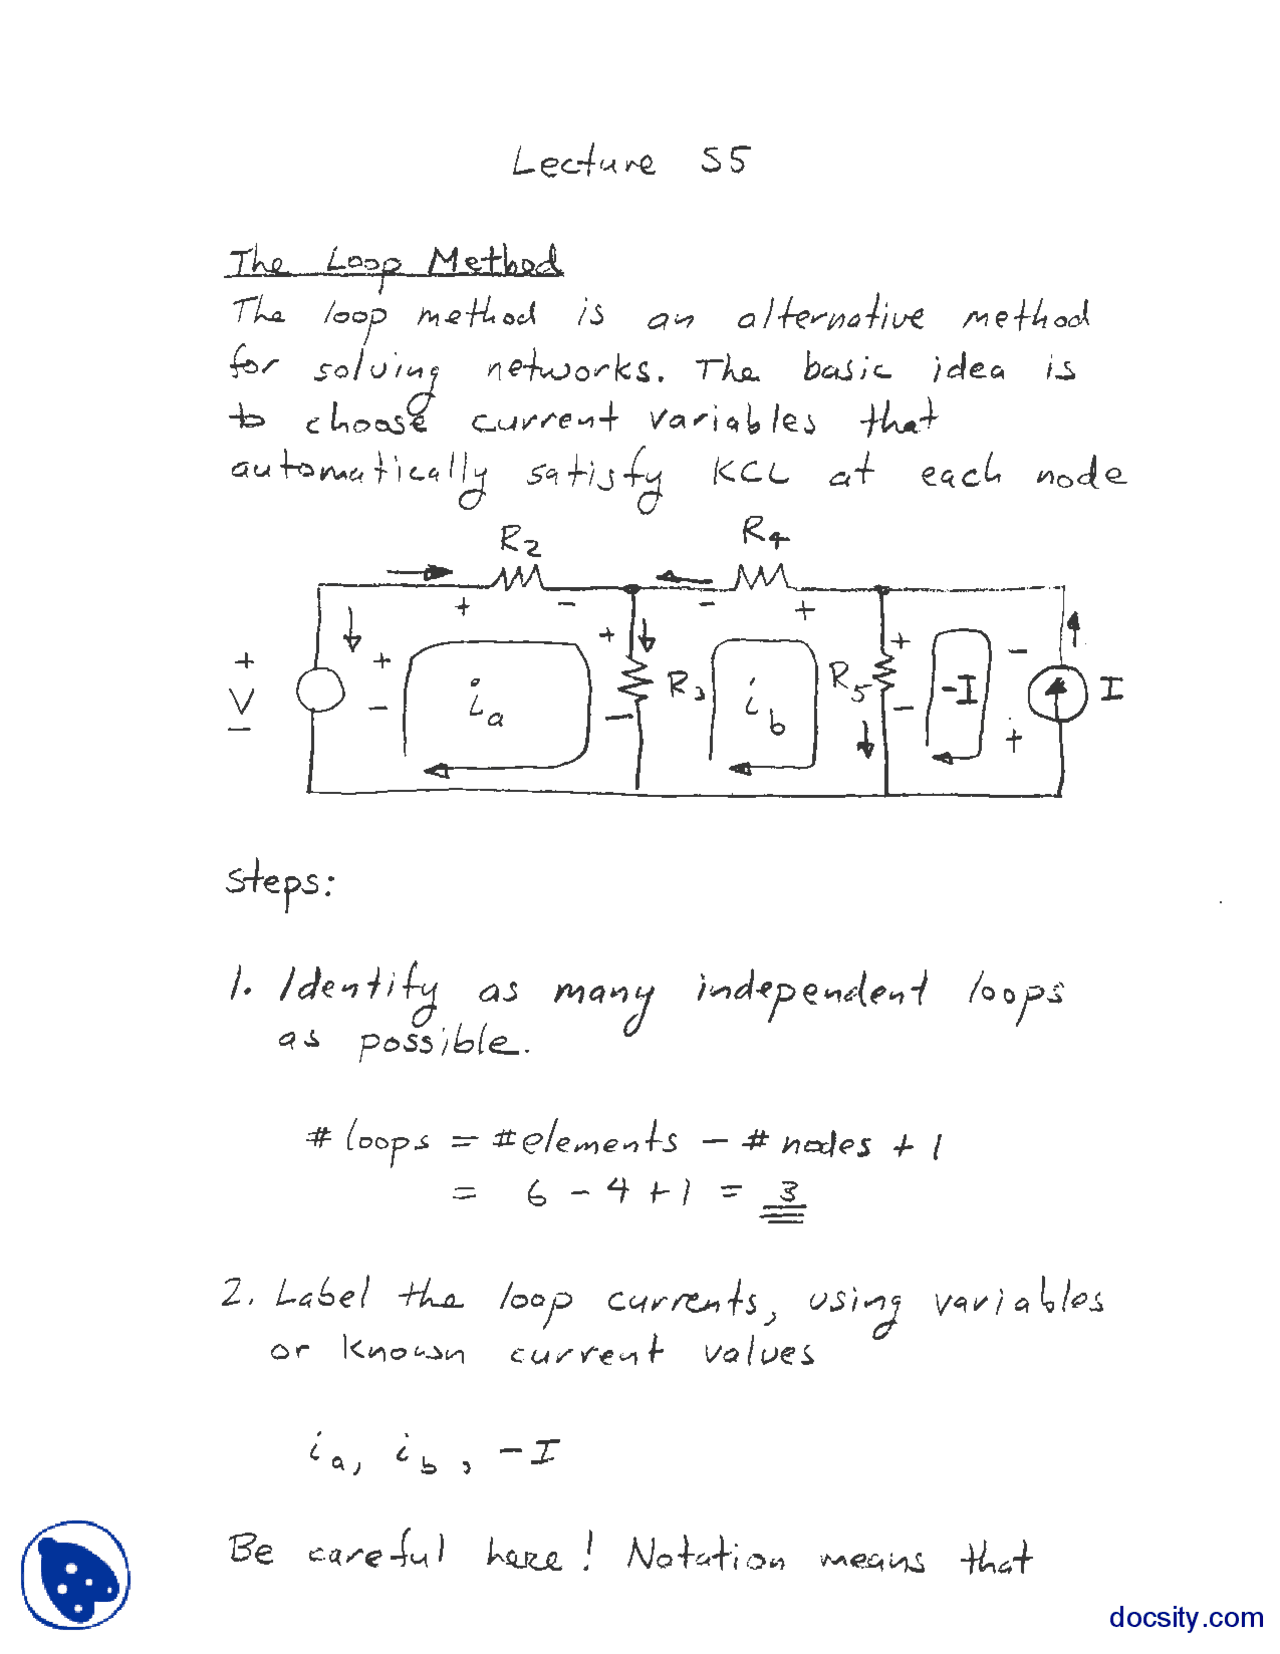 Lecture S5
The Loop Method
The loop method is an alternative method
for solving networks. The basic idea is
to choose current variables that
automatically satisfy KCL at each node
R2 R4
+ - - +
+ V - + - ia + - R3 ib R5 + - -I - + I
Steps:
1. Identify as many independent loops
as possible.
# loops = #elements - # nodes + 1
= 6 - 4 + 1 = 3
2. Label the loop currents, using variables
or known current values
ia, ib, -I
Be careful here! Notation means that
docsity.com